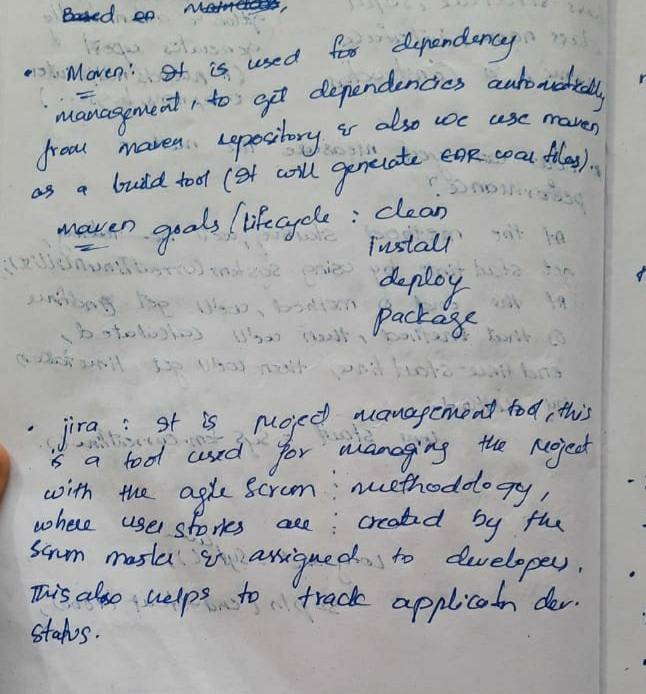 Based on
• Maven: It is used for dependency
management, to get dependencies automatically
from maven repository & also we use maven
as a build tool (It will generate EAR war files).
maven goals / lifecycle : clean
install
deploy
package
• jira : It is project management tool, this
is a tool used for managing the project
with the agile scrum : methodology,
where user stories are : created by the
scrum master & assigned to developers.
This also helps to track application dev.
status.